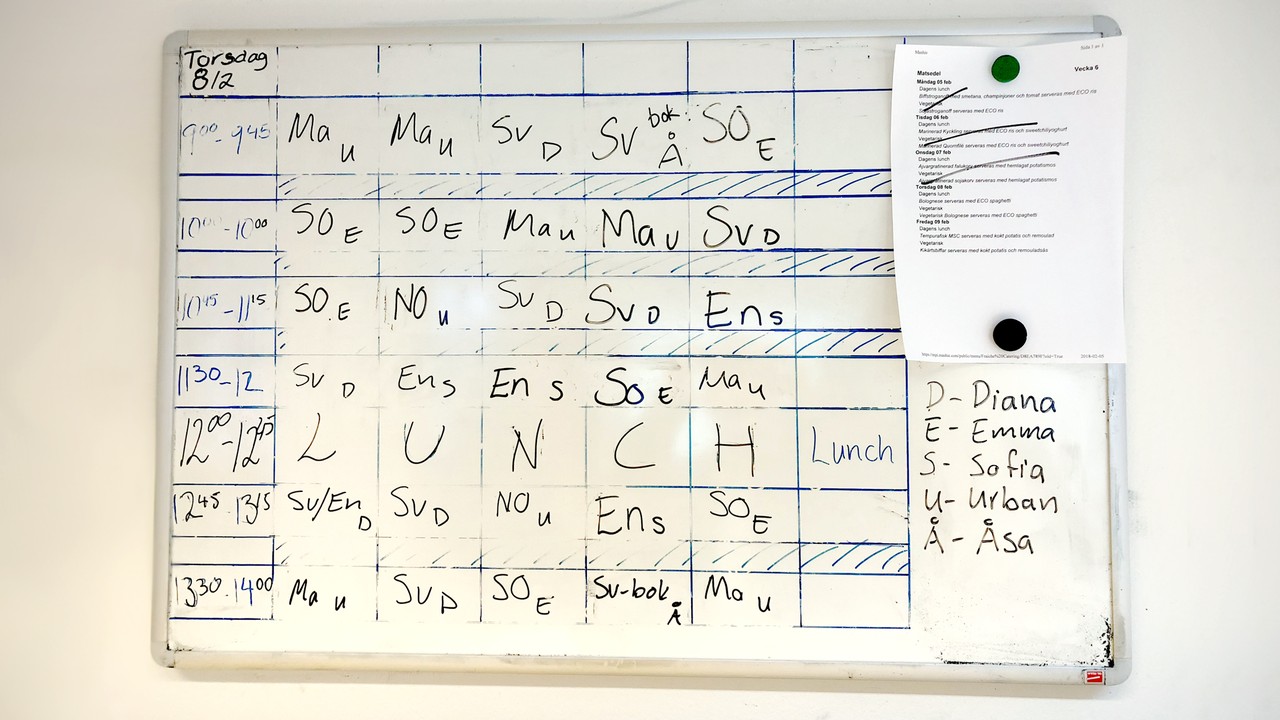 Torsdag
8/2
9 00-9 45 Ma U Ma U Sv D Sv bok: Å SO E
SO E SO E Ma U Ma U Sv D
10 45-11 15 SO.E NO U Sv D Sv D En S
11 30-12 Sv D En S En S So E Ma U
12 00-12 45 L U N C H Lunch
12 45.13 15 Sv/En D Sv D NO U En S SO E
13 30.14 00 Ma U Sv D SO E Sv-bok Å Ma U
D- Diana
E- Emma
S- Sofia
U- Urban
Å- Åsa
Meny Sida 1 av 1
Matsedel Vecka 6
Måndag 05 feb
Dagens lunch
Biffstroganoff med smetana, champinjoner och tomat serveras med ECO ris
Vegetarisk
Sojastroganoff serveras med ECO ris
Tisdag 06 feb
Dagens lunch
Marinerad Kyckling serveras med ECO ris och sweetchiliyoghurt
Vegetarisk
Marinerad Quornfilé serveras med ECO ris och sweetchiliyoghurt
Onsdag 07 feb
Dagens lunch
Ajvargratinerad falukorv serveras med hemlagat potatismos
Vegetarisk
Ajvargratinerad sojakorv serveras med hemlagat potatismos
Torsdag 08 feb
Dagens lunch
Bolognese serveras med ECO spaghetti
Vegetarisk
Vegetarisk Bolognese serveras med ECO spaghetti
Fredag 09 feb
Dagens lunch
Tempurafisk MSC serveras med kokt potatis och remoulad
Vegetarisk
Kikärtsbiffar serveras med kokt potatis och remouladsås
2018-02-05